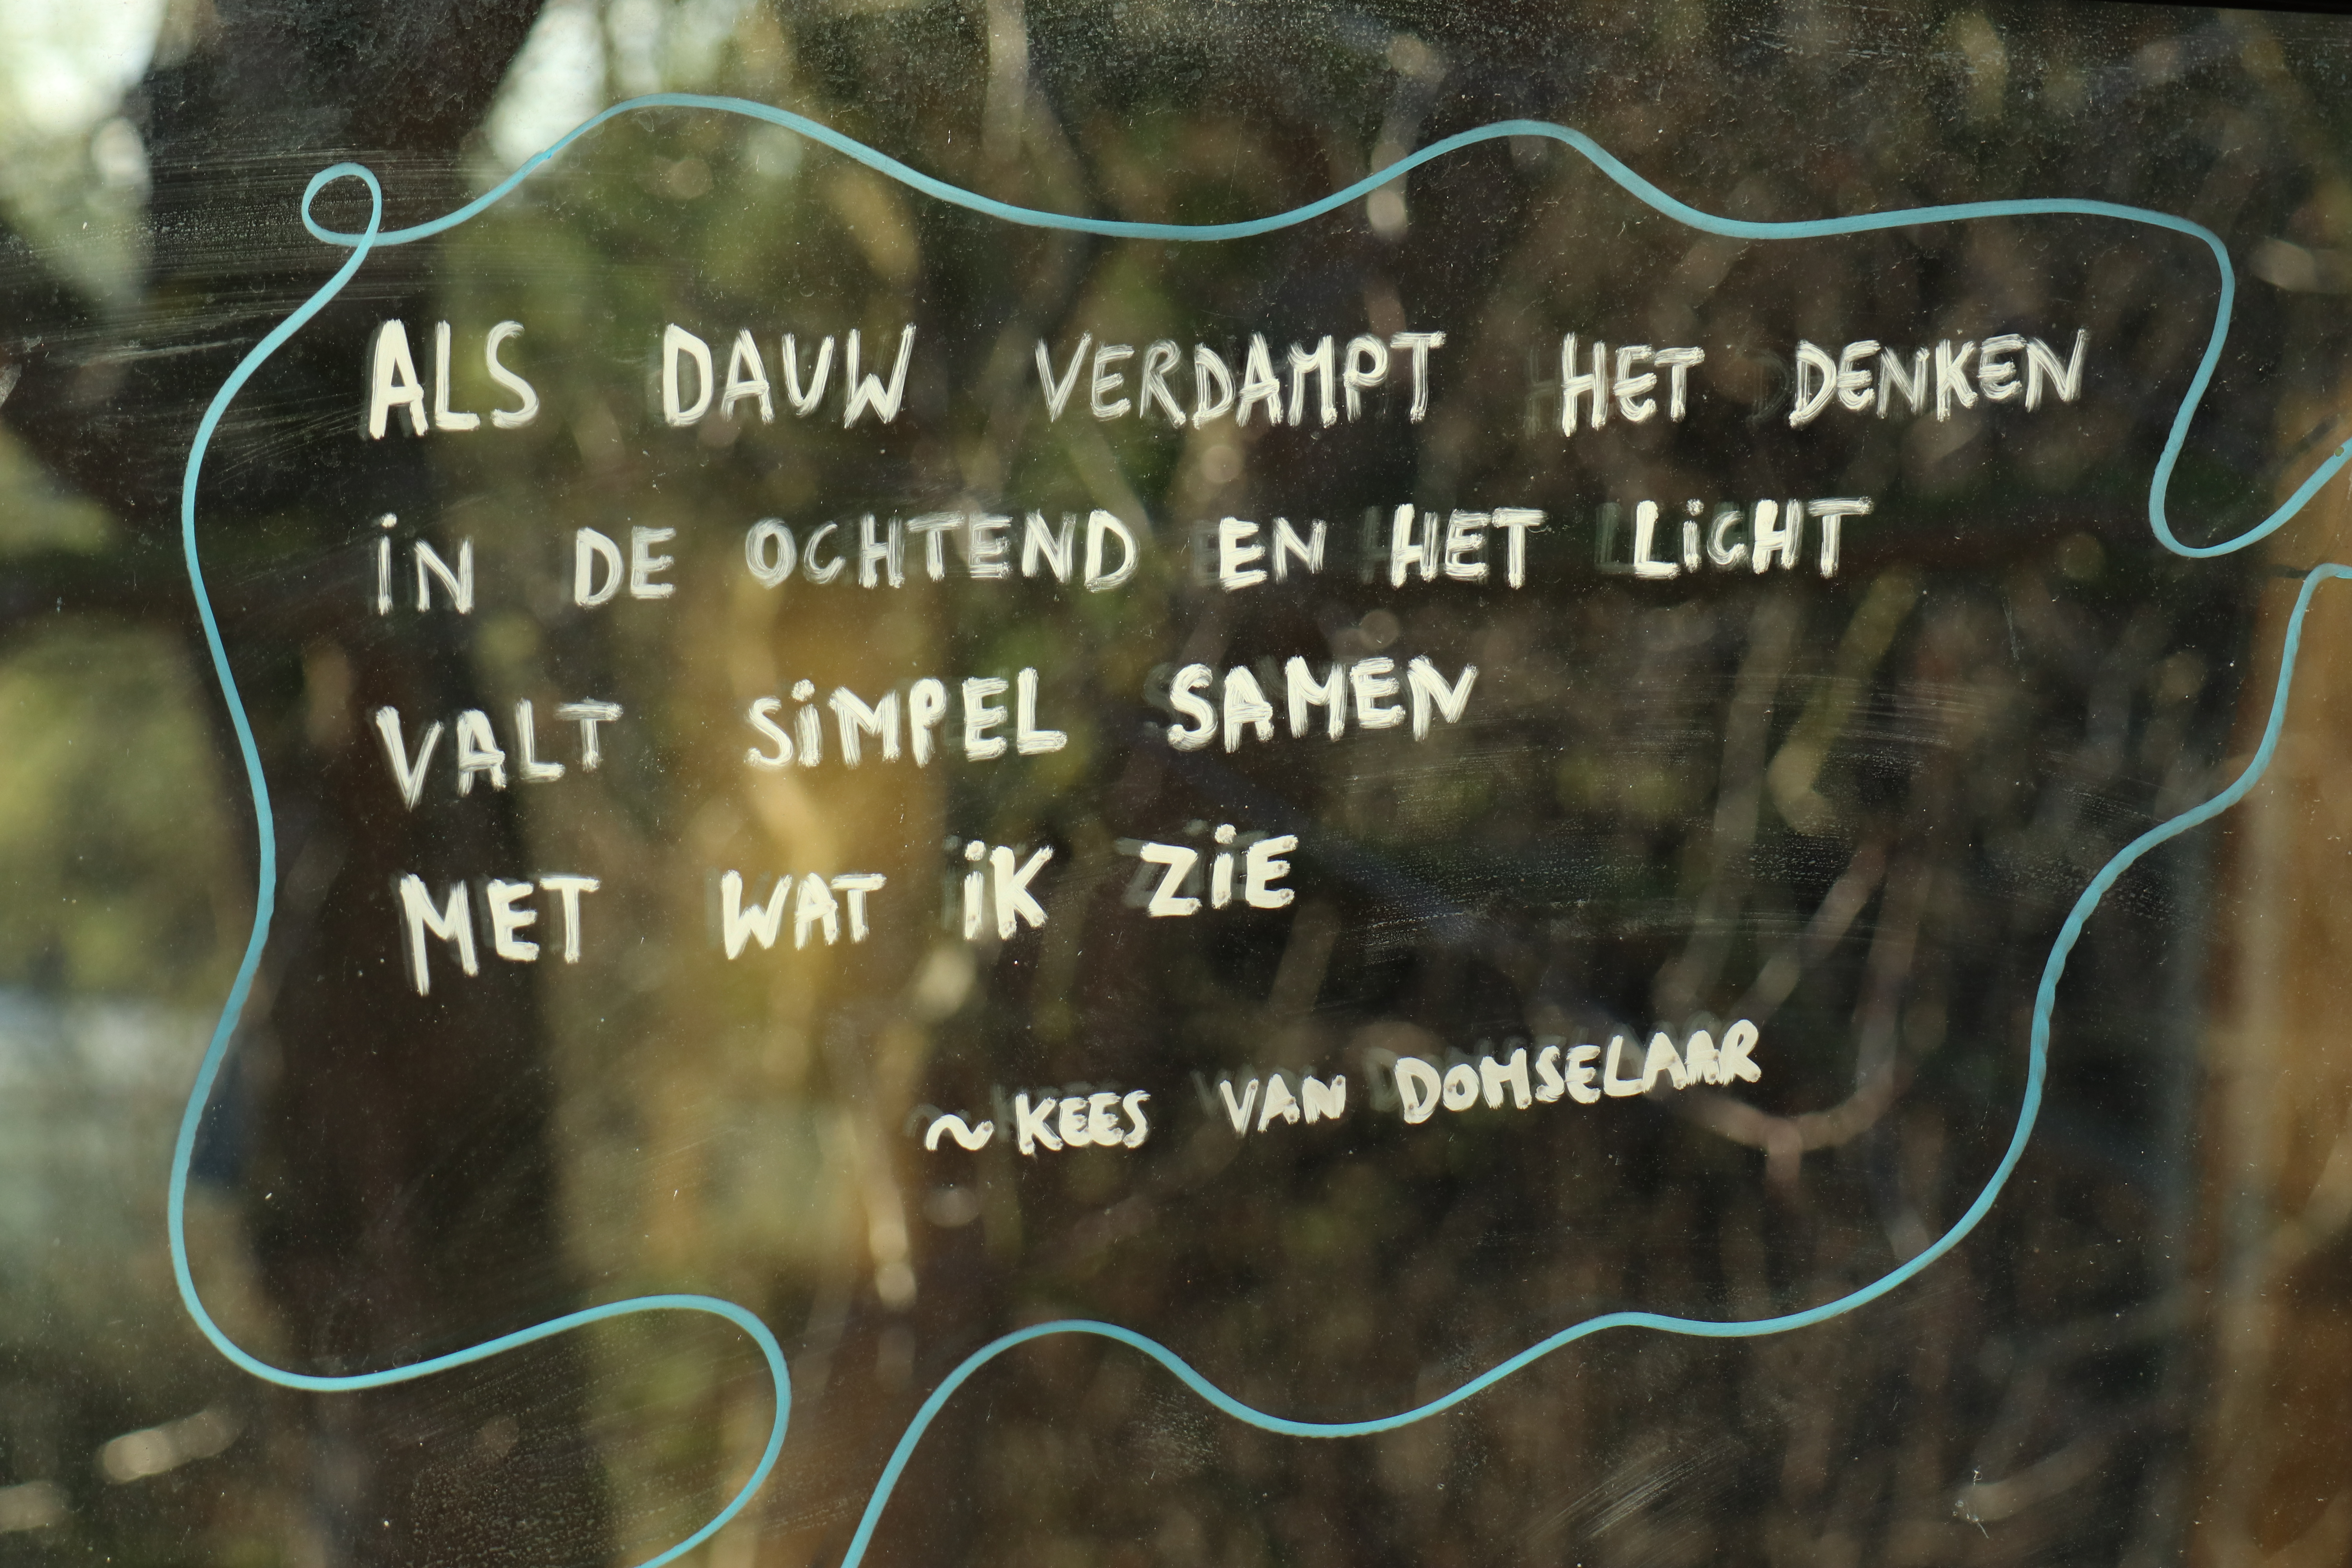 ALS DAUW VERDAMPT HET DENKEN
iN DE OCHTEND EN HET LiCHT
VALT SiMPEL SAMEN
MET WAT iK ZiE
~ KEES VAN DOMSELAAR